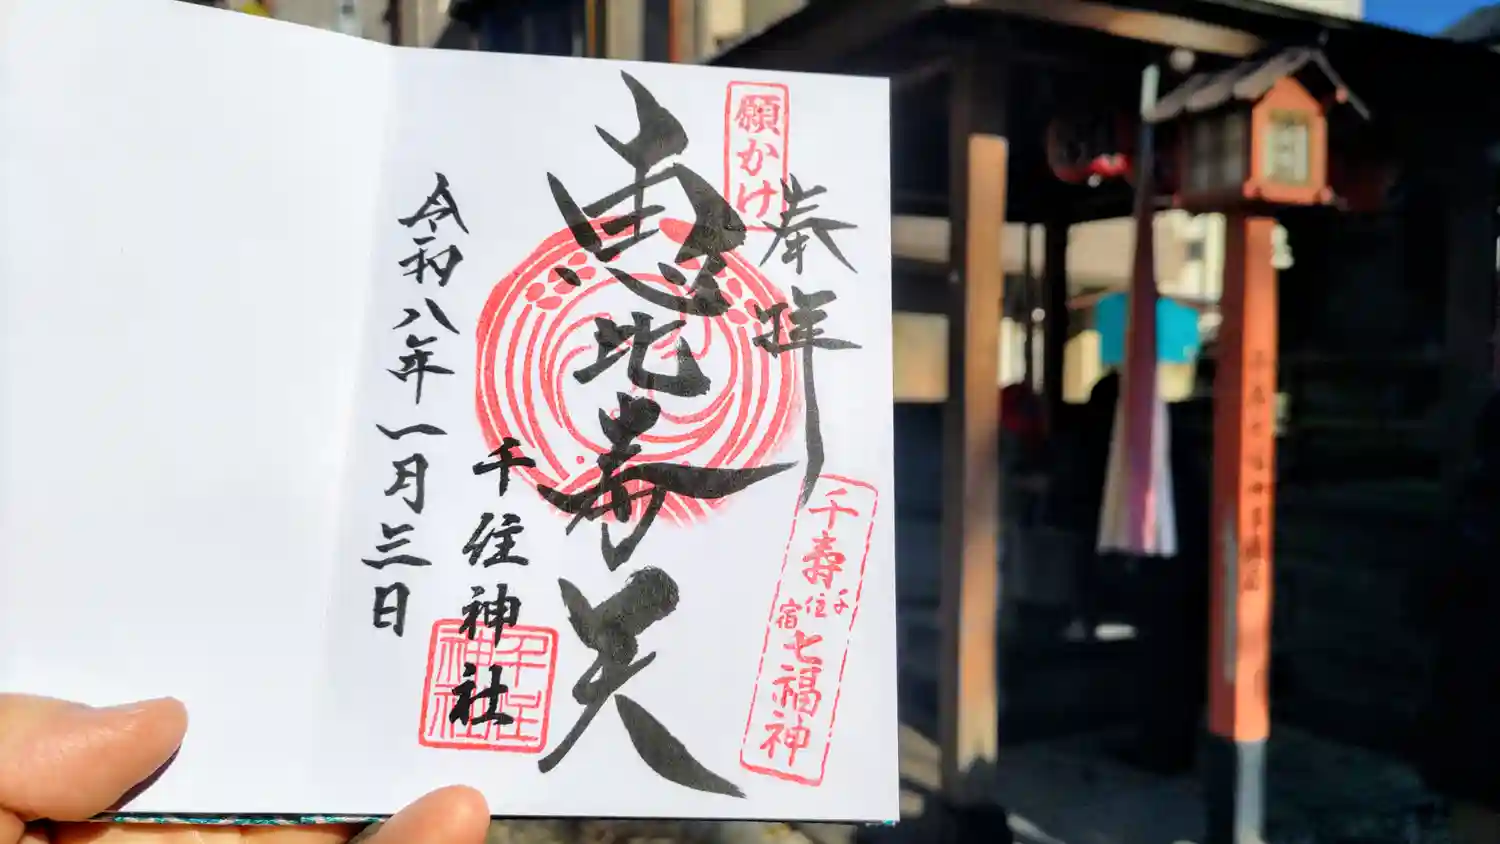 願かけ
奉拝
千寿
千住宿
七福神
恵比寿天
千住神社
千住
神社
令和八年一月三日